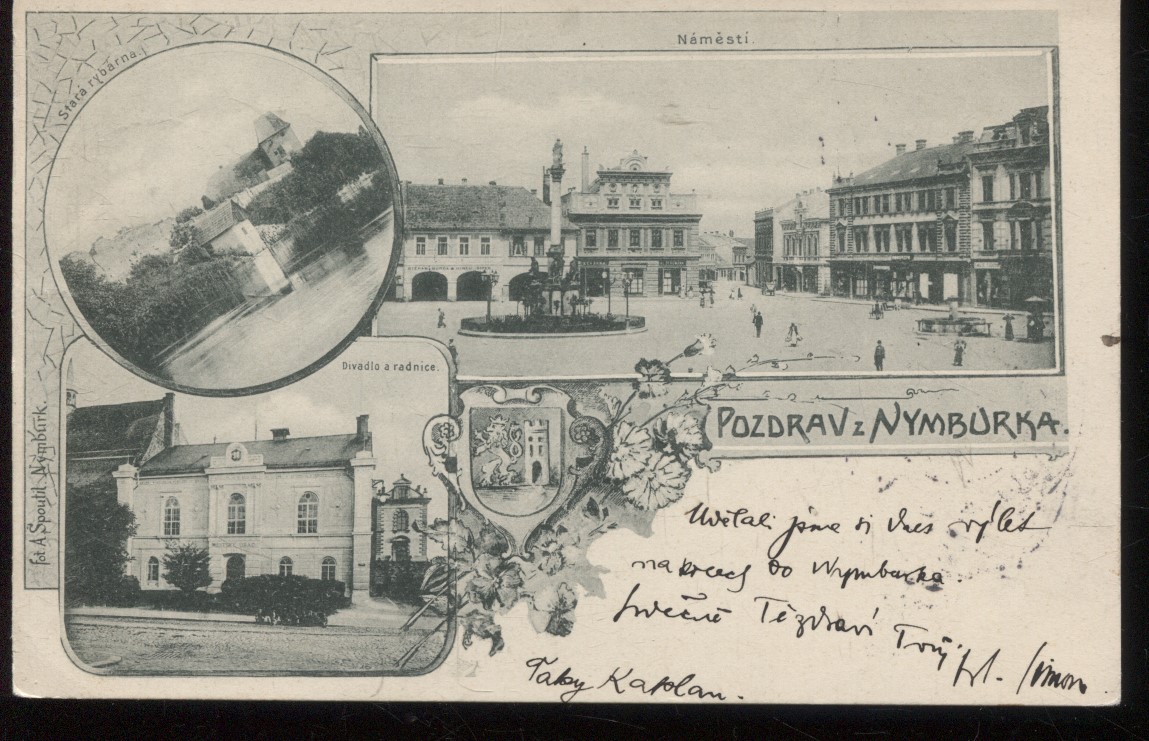 Stará rybárna.
Náměstí.
Divadlo a radnice.
fot. A. Spoutil, Nymburk.
POZDRAV z NYMBURKA.
Udělali jsme si dnes výlet
na do Nymburka.
Srdečně Tě zdraví Tvůj
Simon
Taky Kaplan.